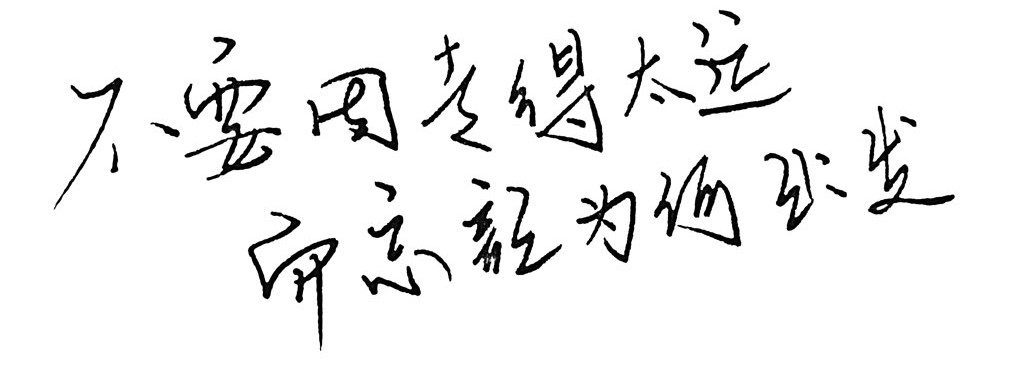 不要因走得太远
而忘記为何出发